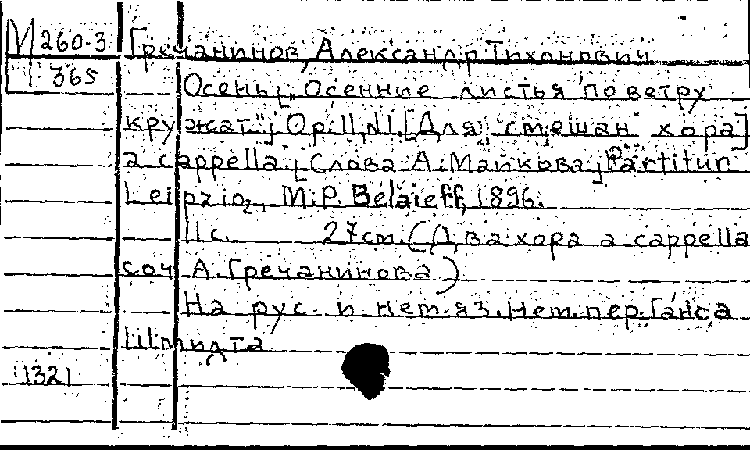 М 260-3 Гречанинов, Александр Тихонович
365 Осень[„Осенние листья по ветру
кружат"; Op. 11, N1. [Для] смешан хора]
a cappella [Слова А. Майкова] Partitur
Leipzig, M.P. Belaieff, 1896.
11 с. 27 см. (Два хора a cappella
соч А. Гречанинова)
На рус. и нем. яз. Нем. пер. Ганса
Шмидта
1321